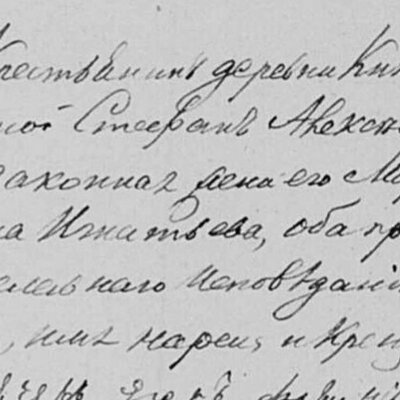 Крестьянинъ деревни Кни
Стефанъ Алекс
законная жена его Ма
на Игнатьева, оба пр
славнаго исповѣдані
, имя нарец и Крещ